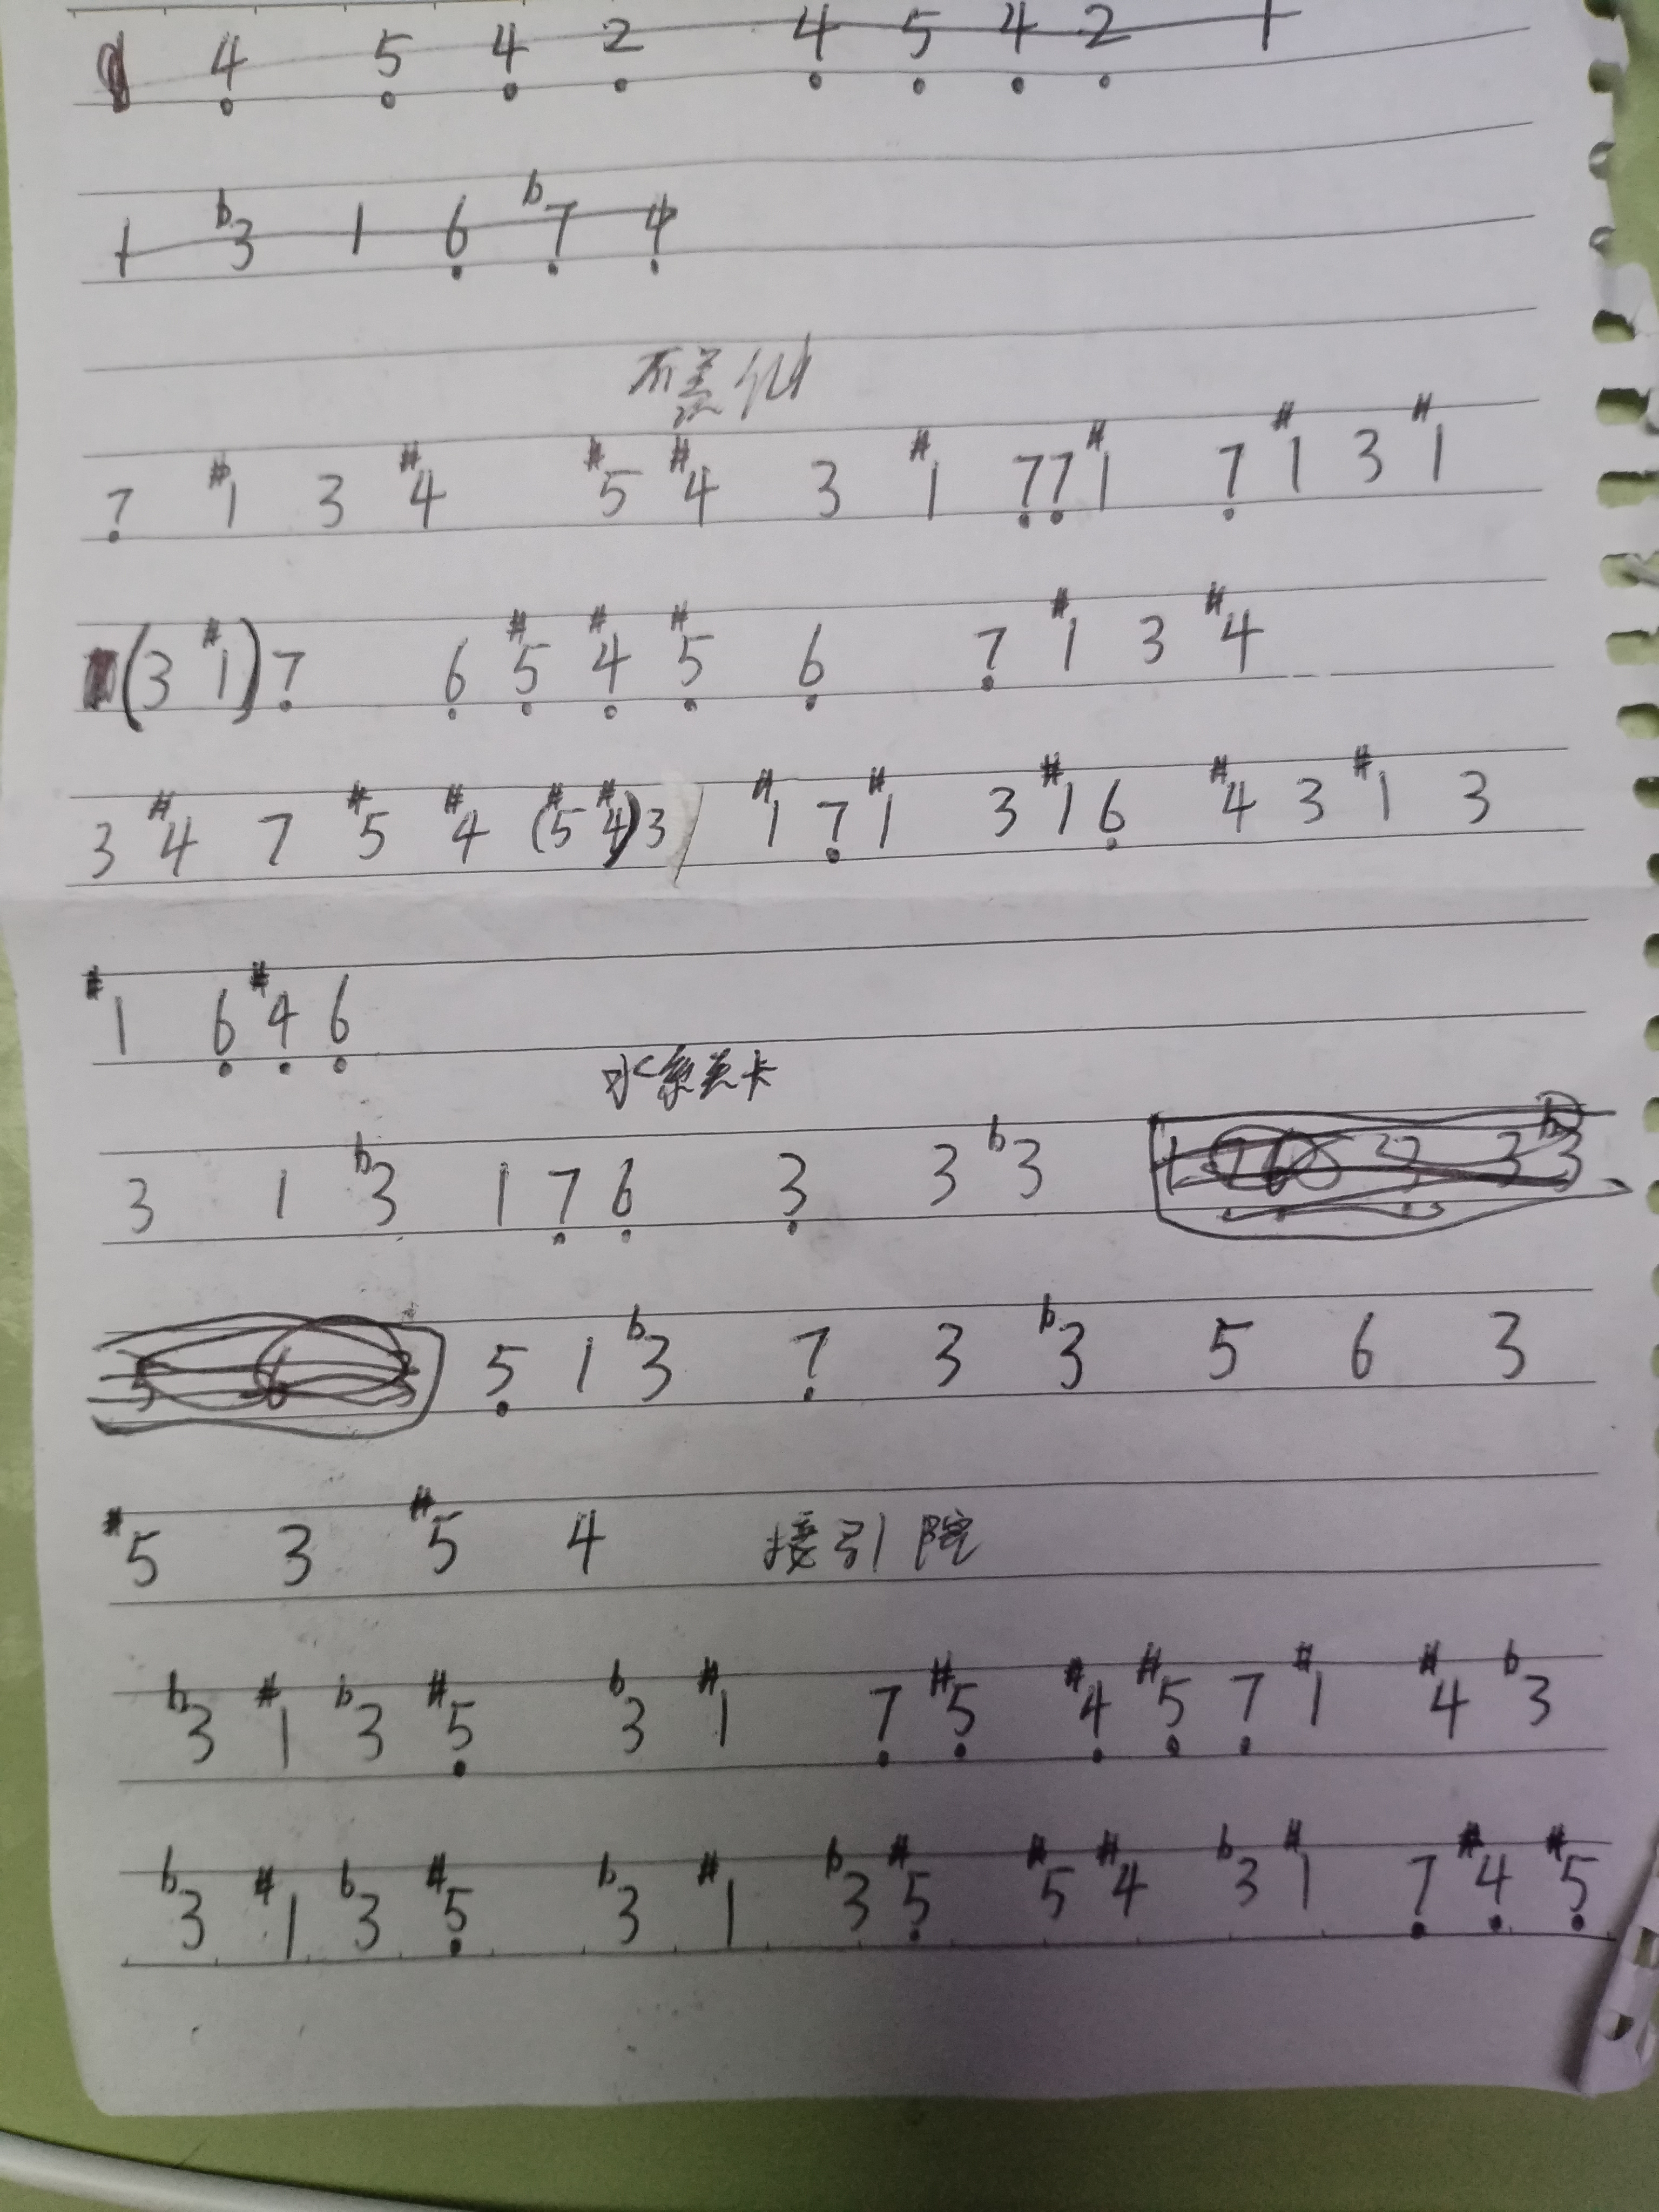 4̣ 5̣ 4̣ 2̣ 4̣ 5̣ 4̣ 2̣ 1
1 b3 1 6̣ b7̣ 4̣
不羡仙
7̣ #1 3 #4 #5 #4 3 #1 7̣7̣ #1 7̣ #1 3 #1
(3 #1) 7̣ 6̣ #5̣ #4̣ #5̣ 6̣ 7̣ #1 3 #4
3 #4 7 #5 #4 (#5 #4) 3 #1 7̣ #1 3 #1 6̣ #4 3 #1 3
#1 6̣ #4̣ 6̣
水系关卡
3 1 b3 1 7̣ 6̣ 3̣ 3 b3
5̣ 1 b3 7̣ 3 b3 5 6 3
#5 3 #5 4 接引院
b3 #1 b3 #5̣ b3 #1 7̣ #5̣ #4̣ #5̣ 7̣ #1 #4 b3
b3 #1 b3 #5̣ b3 #1 b3 #5̣ #5 #4 b3 #1 7̣ #4̣ #5̣